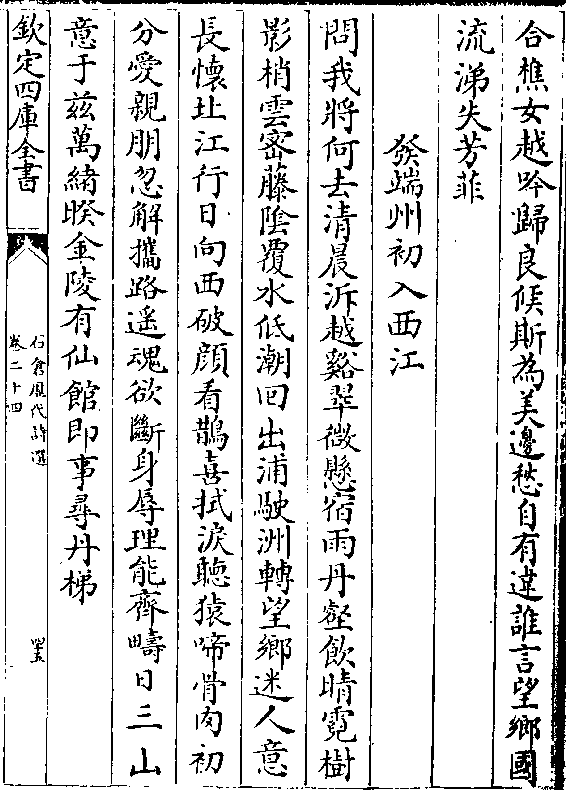 合樵女越吟歸良候斯為美邊愁自有違誰言望鄉國
流涕失芳菲
發端州初入西江
問我將何去清晨泝越谿翠微懸宿雨丹壑飲晴霓樹
影梢雲密藤隂覆水低潮回出浦駛洲轉望鄉迷人意
長懷北江行日向西破顔看鵲喜拭淚聽猿啼骨肉初
分愛親朋忽解攜路遥魂欲斷身辱理能齊疇日三山
意于兹萬緒暌金陵有仙館即事尋丹梯
欽定四庫全書
石倉歴代詩選
卷二十四
四五